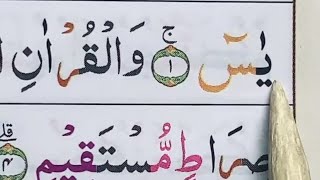 يٰسٓ ۚ ﴿١﴾ وَالْقُرْاٰنِ
صِرَاطٍ مُّسْتَقِيْمٍ ﴿٤﴾